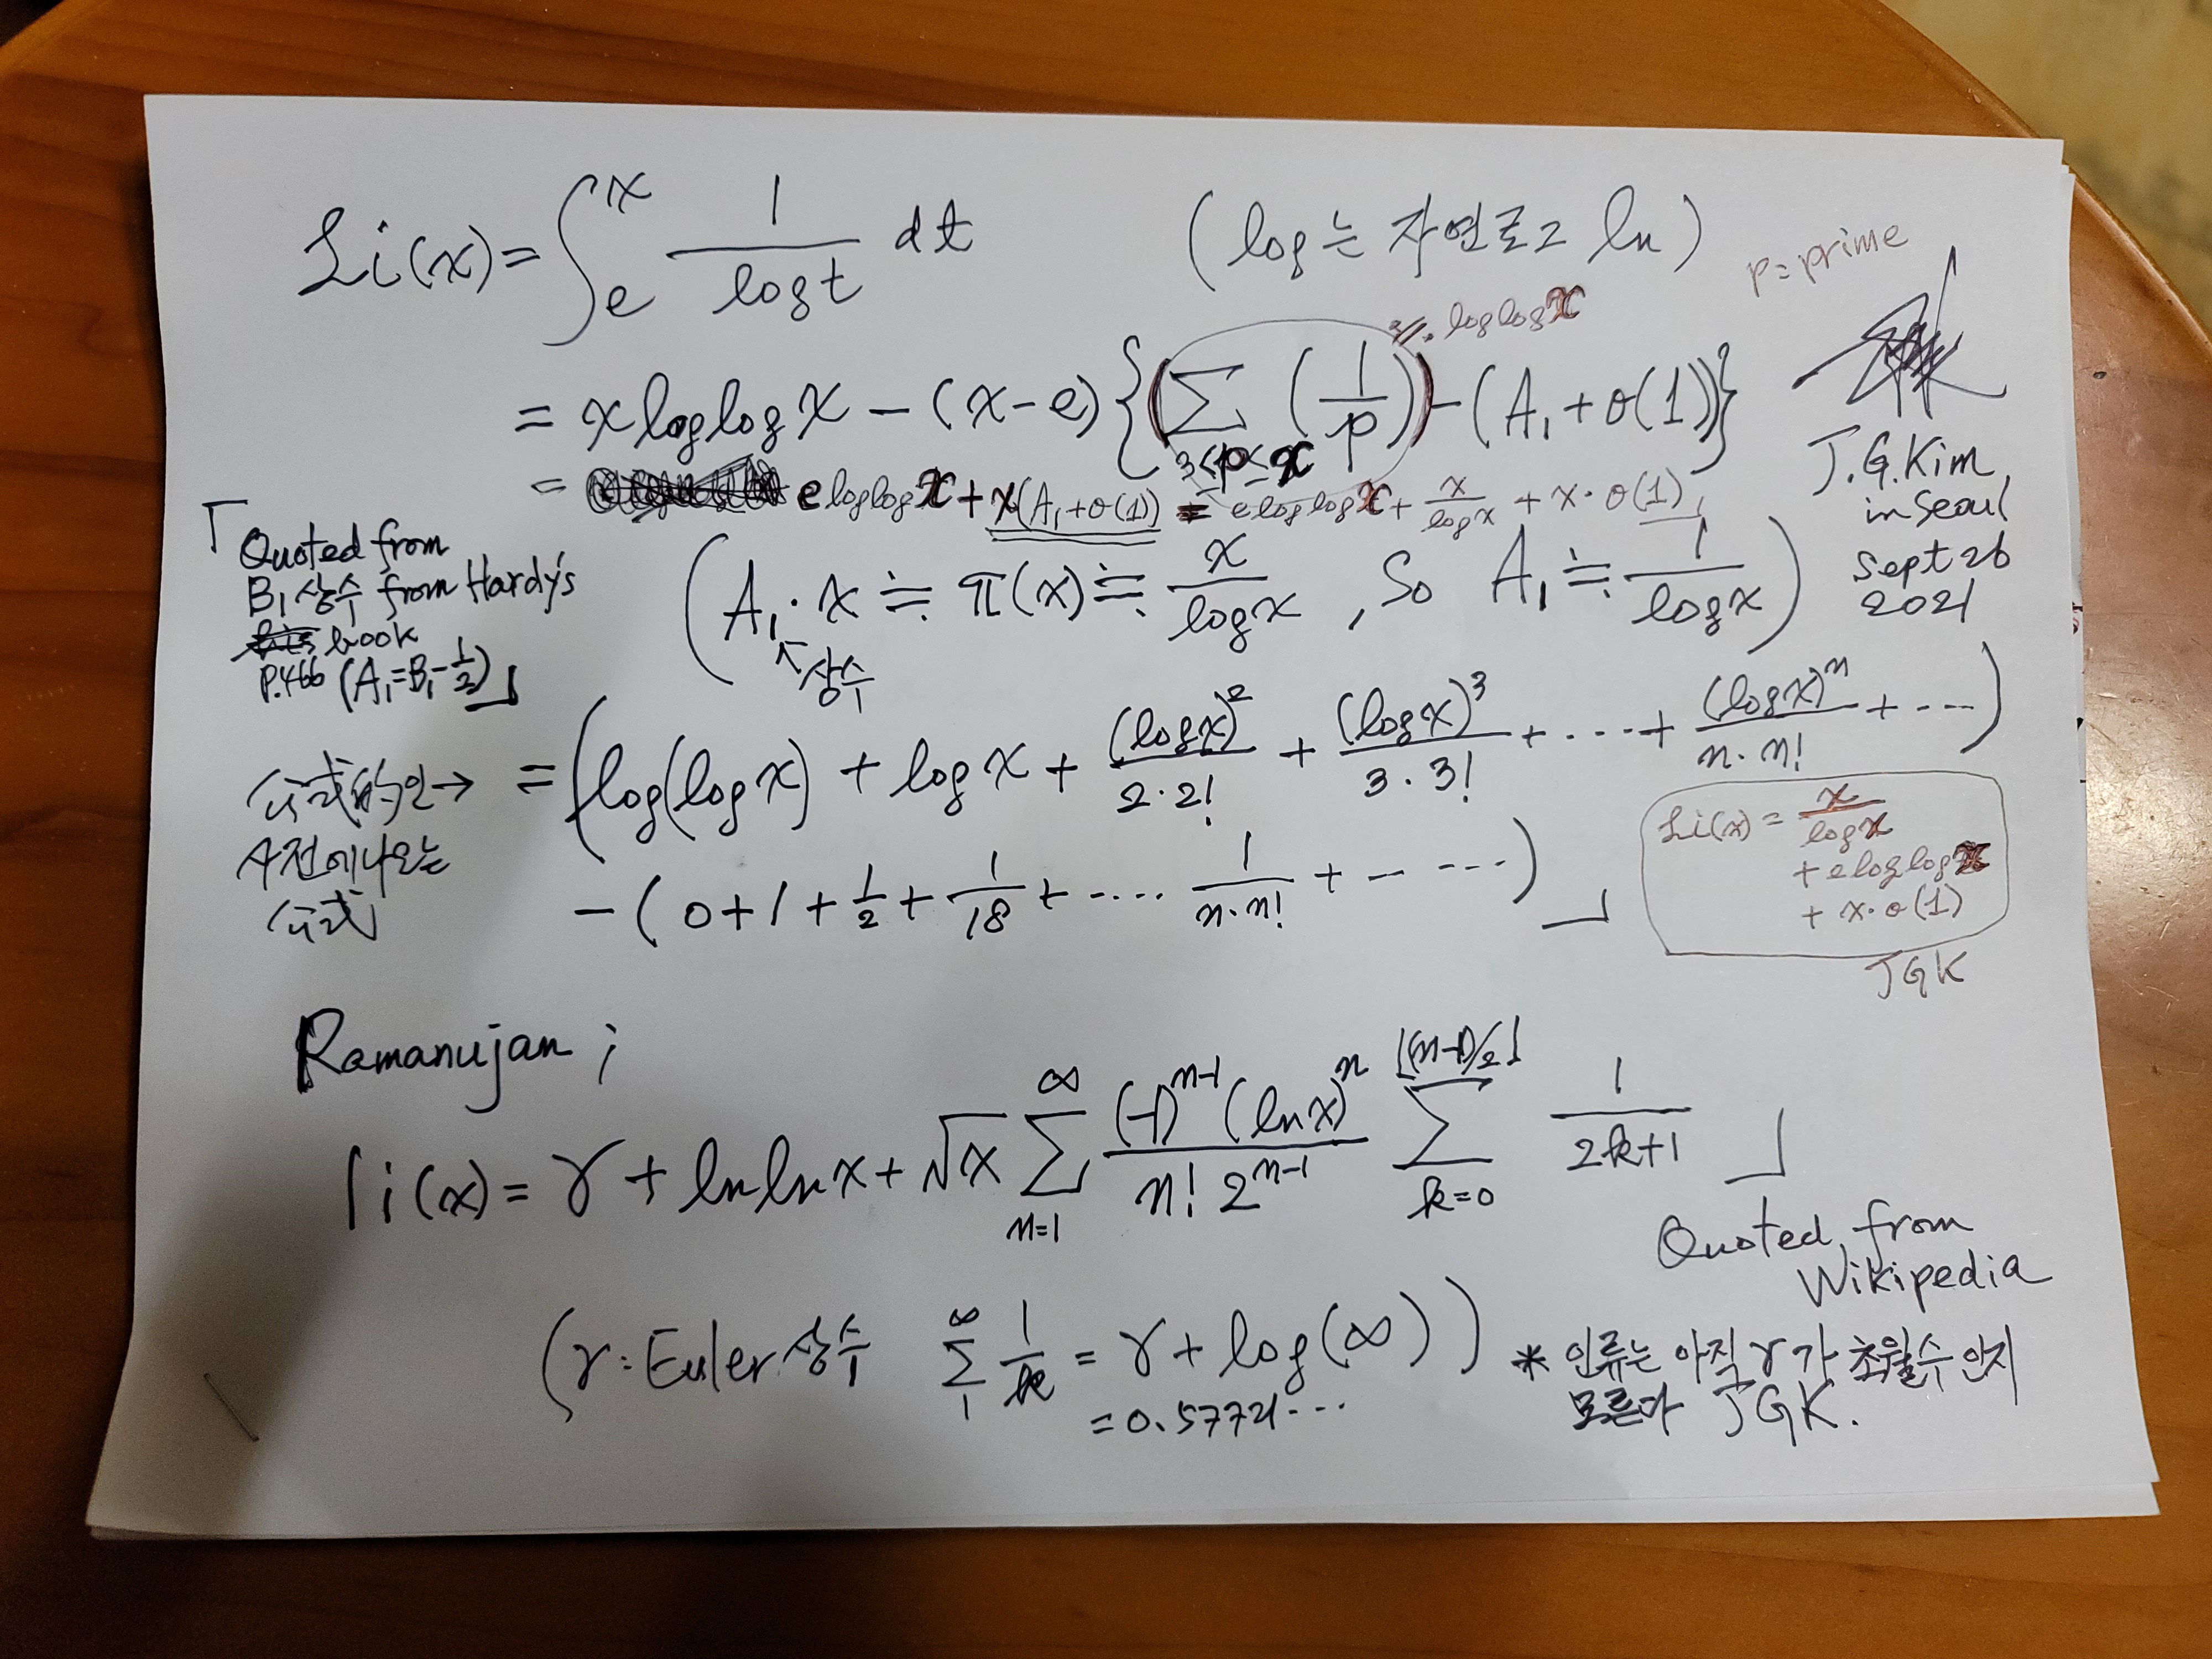 Li(x) = ∫_e^x 1/log t dt (log는 자연로그 ln)
p = prime
≒ log log x
= x log log x − (x−e) { ( Σ_{3≤p≤x} (1/p) ) − (A₁ + o(1)) }
= e log log x + x(A₁ + o(1)) = e log log x + x/log x + x·o(1)
J.G.Kim
in Seoul
Sept 26
2021
「Quoted from
B₁ 상수 from Hardy's
book
P.466 (A₁ = B₁ − 1/2)」
( A₁·x ≒ π(x) ≒ x/log x , So A₁ ≒ 1/log x )
↖상수
公式的인→
사전에 나오는
公式
= ( log(log x) + log x + (log x)²/2·2! + (log x)³/3·3! + ···· + (log x)ⁿ/n·n! + ··· )
− ( 0 + 1 + 1/2 + 1/18 + ···· 1/n·n! + ···· ) 」
Li(x) = x/log x
+ e log log x
+ x·o(1)
JGK
Ramanujan ;
li(x) = γ + ln ln x + √x Σ_{n=1}^∞ (−1)^{n−1} (ln x)^n / n! 2^{n−1} Σ_{k=0}^{⌊(n−1)/2⌋} 1/2k+1 」
Quoted from
Wikipedia
( γ : Euler 상수 Σ_1^∞ 1/k = γ + log(∞) )
= 0.57721···
* 인류는 아직 γ가 초월수인지
모른다 JGK.